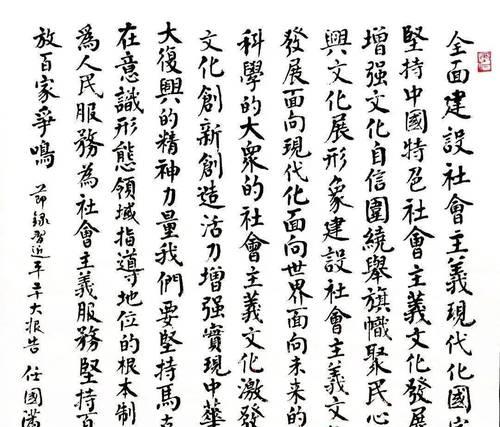 全面建設社會主義現代化國家
堅持中國特色社會主義文化發展
增强文化自信圍繞舉旗幟聚民心
興文化展形象建設社會主義文
發展面向現代化面向世界面向未來的
科學的大衆的社會主義文化激發
文化創新創造活力增强實現中華
大復興的精神力量我們要堅持馬
在意識形態領域指導地位的根本制
爲人民服務為社會主義服務堅持百
放百家爭鳴
節錄習近平二十大報告 任國